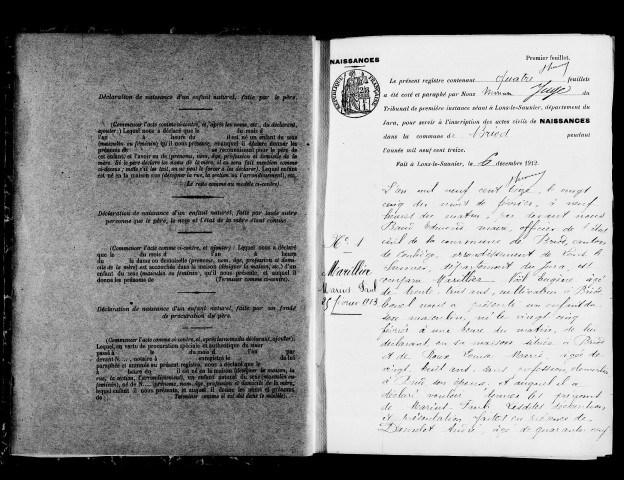 Déclaration de naissance d'un enfant naturel, faite par le père.
(Commencer l'acte comme ci-contre, et, après les noms, etc., du déclarant,
ajouter :) Lequel nous a déclaré que le du mois d
l'an à heure du il est né un enfant du sexe
(masculin ou féminin) qu'il nous présente, auquel il déclare donner les
prénoms de se reconnaissant pour le père de
cet enfant et l'avoir eu de (prénoms, nom, âge, profession et domicile de la
mère). Si le père déclare les noms de la mère, il en sera fait mention comme
ci-dessus ; mais s'il les tait, on ne peut le forcer à les déclarer). Lequel enfant
est né en la maison (désigner la rue, la section ou l'arrondissement), etc.
Le reste comme au modèle ci-contre).
Déclaration de naissance d'un enfant naturel, faite par toute autre
personne que le père, le nom et l'état de la mère étant connus.
(Commencer l'acte comme ci-contre, et ajouter) : Lequel nous a déclaré
que le du mois d l'an à heure
du la dame ou demoiselle (prénoms, nom, âge, profession et domi-
cile de la mère) est accouchée dans la maison (désigner la maison, etc.) d'un
enfant du sexe (masculin ou féminin) qu'il nous présente, et auquel il donne
les prénoms de (Terminer comme ci-contre).
Déclaration de naissance d'un enfant naturel, faite par un fondé
de procuration du père.
(Commencer l'acte comme ci-contre, et après les noms du déclarant, ajouter).
Lequel, en vertu de procuration spéciale et authentique du sieur
passée le du mois d l'an par
devant N..., notaire à enregistrée le du
paraphée et annexée au présent registre, nous a déclaré que le
heure du il est né en la maison (désigner la maison, la
rue, la section, l'arrondissement), un enfant naturel du sexe (masculin ou
féminin), et de N... (prénoms, nom, âge, profession et domicile de la mère,
lequel enfant nous présente, et auquel il donne les prénoms de
Terminer comme il est dit dans le modèle).
NAISSANCES
Premier feuillet.
Le présent registre contenant quatre feuillets
a été coté et paraphé par Nous Juge du
Tribunal de première instance séant à Lons-le-Saunier, département du
Jura, pour servir à l'inscription des actes civils de NAISSANCES
dans la commune de Briod pendant
l'année mil neuf cent treize.
Fait à Lons-le-Saunier, le 6 décembre 1912.
RÉPUBLIQUE FRANÇAISE
N° 1
Marillier
Marius Paul
25 février 1913
L'an mil neuf cent treize, le vingt
cinq du mois de février, à neuf
heures du matin, par devant nous
Edmond maire, officier de l'état
civil de la commune de Briod, canton
de Conliège, arrondissement de Lons le
Saunier, département du Jura, est
comparu Marillier Eugène âgé
de trente huit ans, cultivateur à Briod
lequel nous a présenté un enfant du
sexe masculin, né le vingt cinq
février à une heure du matin, de lui
déclarant, en sa maison située à Briod
et de Roux Marie âgée de
vingt huit ans, sans profession, demeurant
à Briod son épouse, et auquel il a
déclaré vouloir donner les prénoms
de Marius Paul. Lesdites déclaration
et présentation faites en présence de
André, âgé de quarante neuf